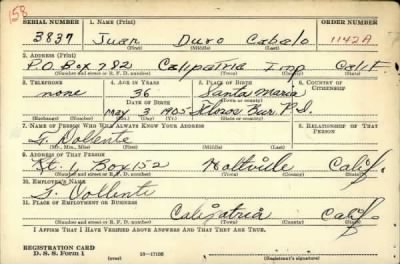 158
SERIAL NUMBER 1. NAME (Print) ORDER NUMBER
3837 Juan Duro Cabalo 1142A
(First) (Middle) (Last)
2. ADDRESS (Print)
P.O. Box 782 Calipatria Imp Calif.
(Number and street or R. F. D. number) (Town) (County) (State)
3. TELEPHONE 4. AGE IN YEARS 5. PLACE OF BIRTH 6. COUNTRY OF CITIZENSHIP
none 36 Santa Maria
DATE OF BIRTH (Town or county)
May 3 1905 Ilocos Sur P.I.
(Exchange) (Number) (Mo.) (Day) (Yr.) (State or country)
7. NAME OF PERSON WHO WILL ALWAYS KNOW YOUR ADDRESS 8. RELATIONSHIP OF THAT PERSON
Dollente
(Mr., Mrs., Miss) (First) (Middle) (Last)
9. ADDRESS OF THAT PERSON
Rt. 1 Box 152 Holtville Calif.
(Number and street or R. F. D. number) (Town) (County) (State)
10. EMPLOYER'S NAME
Dollente
11. PLACE OF EMPLOYMENT OR BUSINESS
Calipatria Calif.
(Number and street or R. F. D. number) (Town) (County) (State)
I AFFIRM THAT I HAVE VERIFIED ABOVE ANSWERS AND THAT THEY ARE TRUE.
REGISTRATION CARD
D. S. S. Form 1 16—17105 (Registrant's signature)